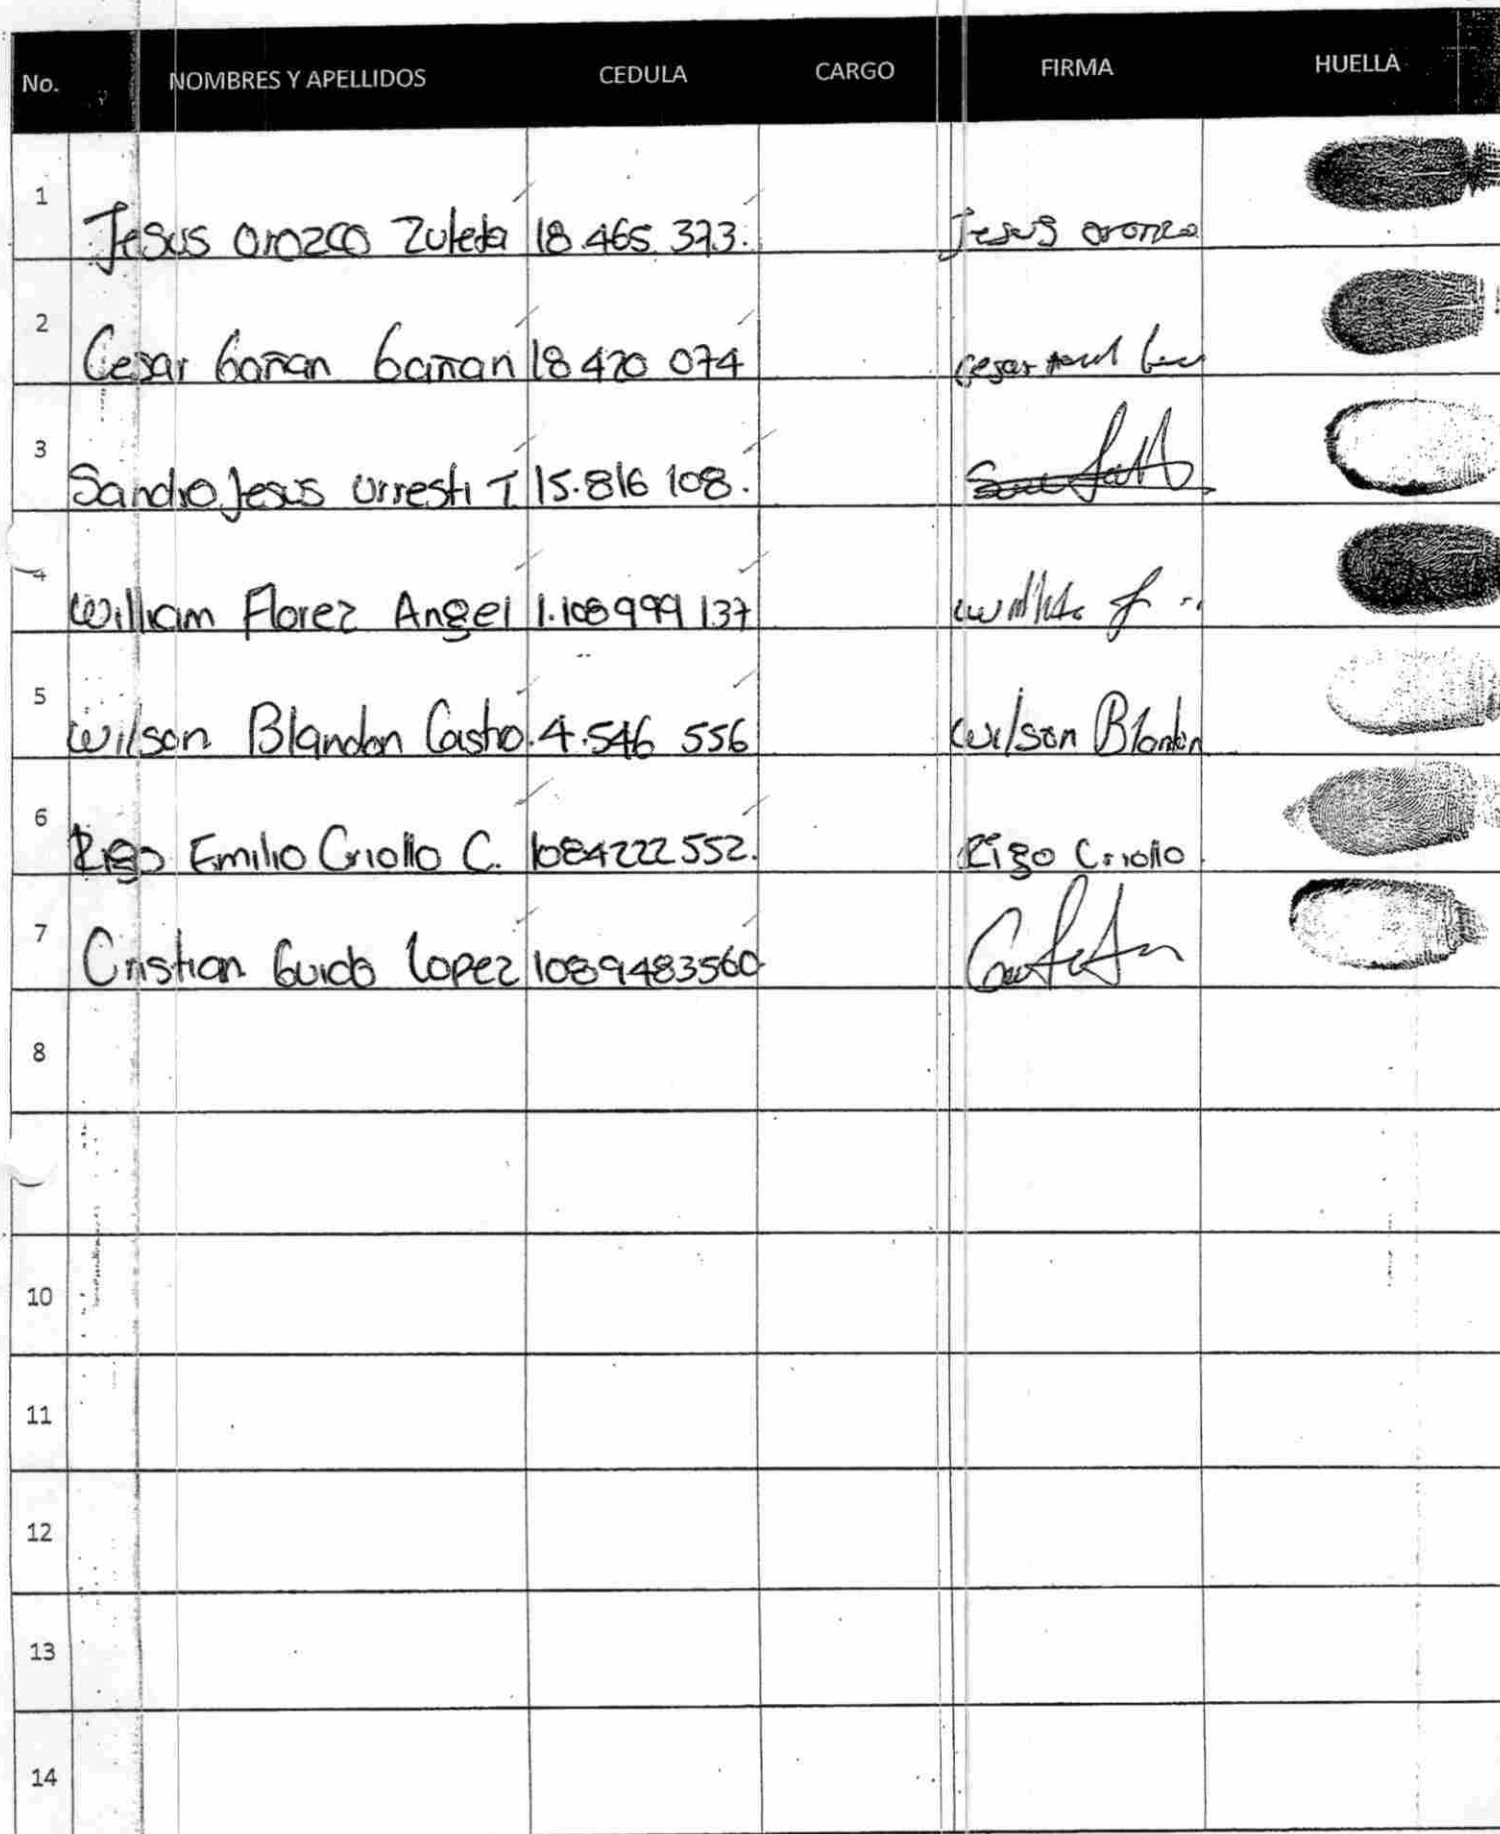 No. NOMBRES Y APELLIDOS CEDULA CARGO FIRMA HUELLA
1 Jesus Orozco Zuleta 18.465.373. Jesus orozco
2 Cesar Gañan Gañan 18 420 074 cesar
3 Sandro Jesus Urresti T. 15.816 108.
4 William Florez Angel 1.108999 137
5 Wilson Blandon Castro. 4.546 556 Wilson Blandon
6 Rigo Emilio Criollo C. 1084222552. Rigo Criollo.
7 Cristian Guido Lopez 1089483560
8
10
11
12
13
14